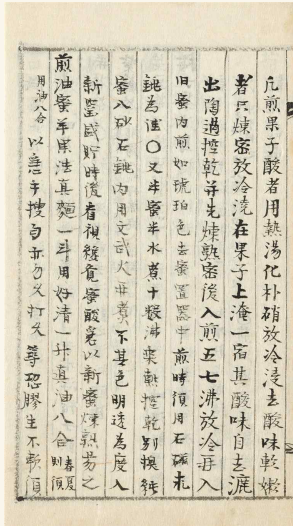 凡煎果子酸者用熱湯化朴硝放冷浸去酸味軟嫩
者只煉蜜放冷澆在果子上淹一宿其酸味自去漉
出陶過控乾并先煉熟蜜後入煎五七沸放冷再入
旧蜜內煎如琥珀色去蜜置器中 煎時須用石磁瓦
銚為佳〇又半蜜半水煮十數沸乘熱控乾別換純
蜜入砂石銚內用文武火再煮 下其色明透為度入
新蜜盛貯時後看視纔覺蜜酸急以新蜜煉熟易之
煎油蜜羊果法真麵一斗用好清一升真油八合 春夏則須
用油八合 以急手搜勻 勿久打久 恐膠生不軟須